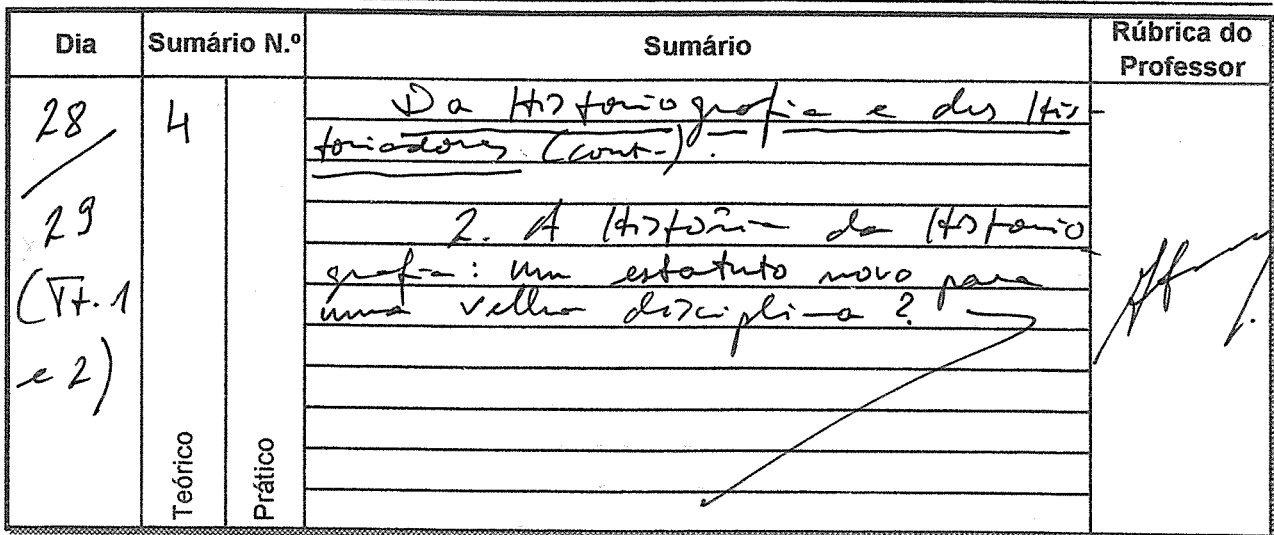 Dia Sumário N.º Sumário Rúbrica do Professor
28/29
(Tt. 1
e 2)
4
Teórico
Prático
Da Historiografia e dos His-
toriadores (cont.).
2. A História da Historio-
grafia: um estatuto novo para
uma velha disciplina?